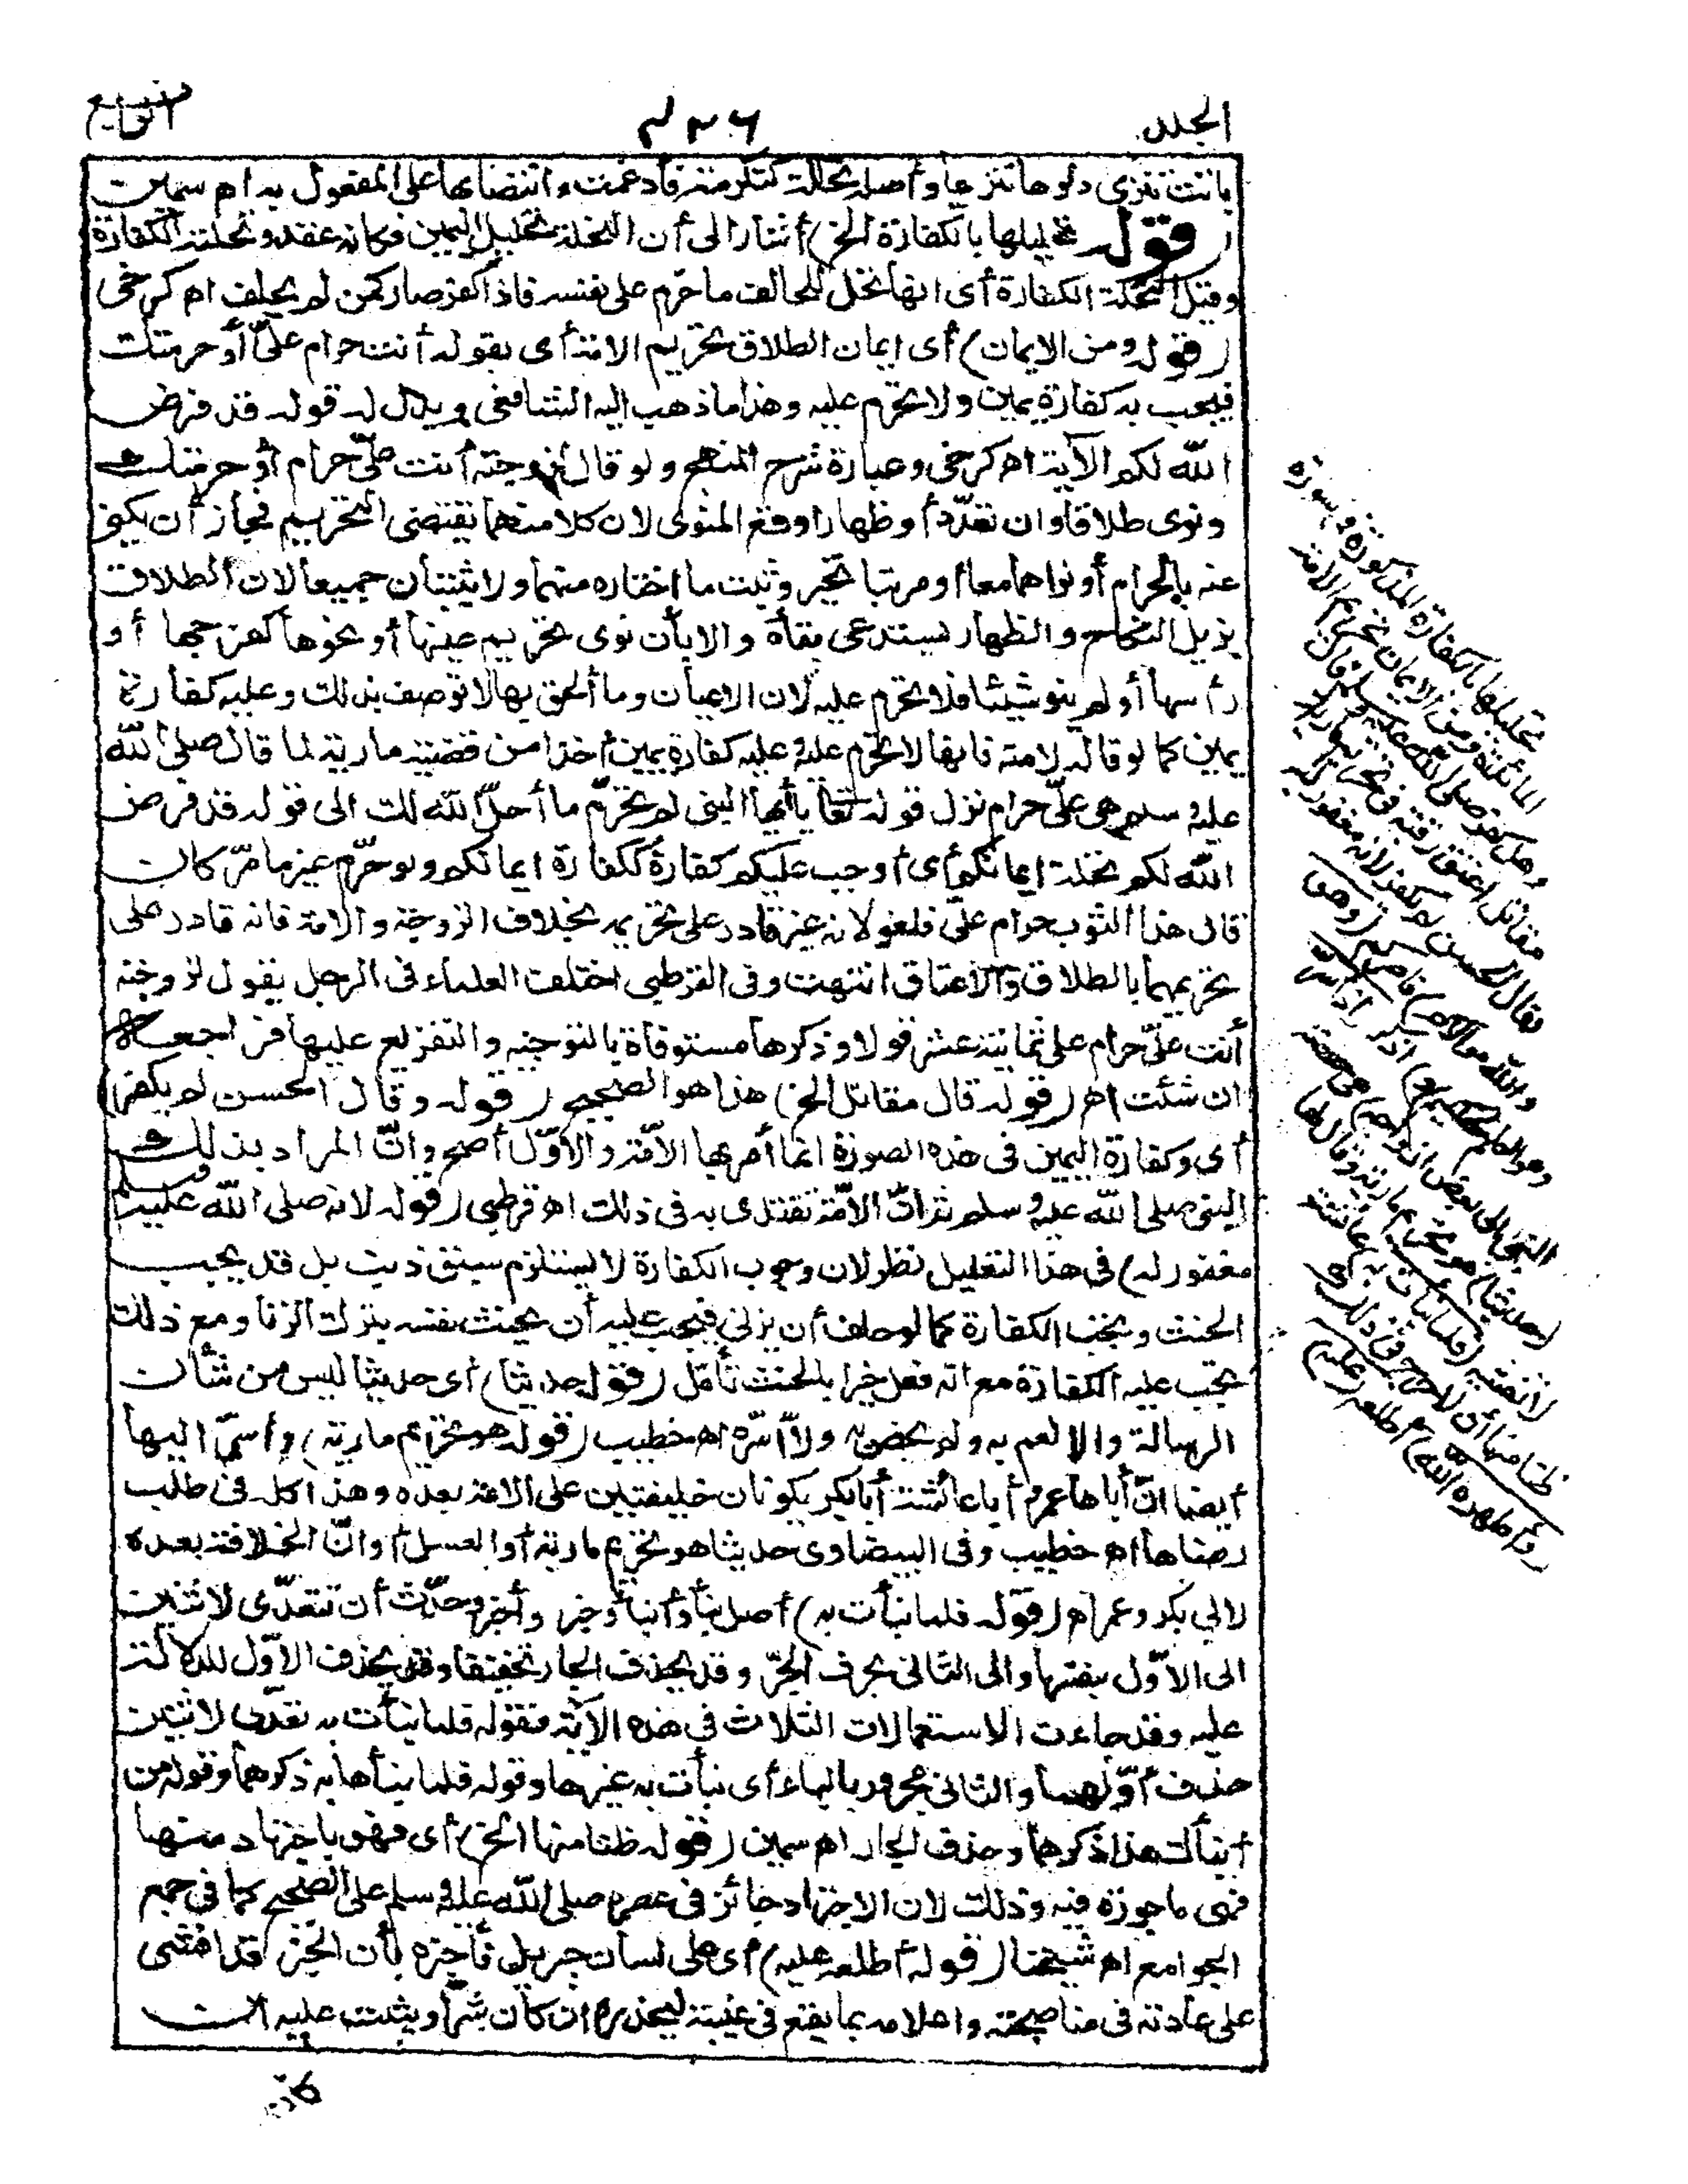 الجلد
٤٣٦
الرابع
وأصله تحللة كتكرمة فأدغمت وانتصابها على المفعول به اهـ سمين
(قوله تحليلها بالكفارة الخ) أشار إلى أن التحلة تحليل اليمين فكأنه عقد وتحلته الكفارة
وقيل التحلة الكفارة أى انها تحل للحالف ما حرّم على نفسه فاذا كفر صار كمن لم يحلف اهـ كرخى
(قوله ومن الايمان) أى ايمان الطلاق تحريم الامة أى بقوله أنت حرام علىّ أو حرمتك
فيجب به كفارة يمين ولا تحرم عليه وهذا ما ذهب اليه الشافعى ويدل له قوله قد فرض
الله لكم الآية اهـ كرخى وعبارة شرح المنهج ولو قال لزوجته أنت علىّ حرام أو حرمتك
ونوى طلاقا وان تعدّد أو ظهارا وقع المنوى لان كلا منهما يقتضى التحريم فجاز أن يكنى
عنه بالحرام أو نواهما معا أو مرتبا تخير وثبت ما اختاره منهما ولا يثبتان جميعا لان الطلاق
يزيل النكاح والظهار يستدعى بقاه والا بأن نوى تحريم عينها أو نحوها كفرجها أو
رأسها أو لم ينو شيئا فلا تحرم عليه لان الاعيان وما ألحق بها لا توصف بذلك وعليه كفارة
يمين كما لو قاله لامته فانها لا تحرم عليه وعليه كفارة يمين أخذا من قضية مارية لما قال صلى الله
عليه وسلم هى علىّ حرام نزل قوله تعالى يا أيها النبى لم تحرّم ما أحلّ الله لك الى قوله قد فرض
الله لكم تحلة ايمانكم أى أوجب عليكم كفارة ككفارة ايمانكم ولو حرّم غير ما مرّ كان
قال هذا الثوب حرام علىّ فلغو لانه غير قادر على تحريمه بخلاف الزوجة والامة فانه قادر على
تحريمهما بالطلاق والاعتاق انتهت وفى القرطبى اختلف العلماء فى الرجل يقول لزوجته
أنت علىّ حرام على ثمانية عشر قولا وذكرها مستوفاة بالتوجيه والتفريع عليها فراجعه
ان شئت اهـ (قوله قال مقاتل الخ) هذا هو الصحيح (قوله وقال الحسن لم يكفر)
أى وكفارة اليمين فى هذه الصورة انما أمر بها الأمّة والأوّل أصح وانّ المراد بذلك
النبى صلى الله عليه وسلم ثم انّ الأمّة تقتدى به فى ذلك اهـ قرطبى (قوله لانه صلى الله عليه وسلم
مغفور له) فى هذا التعليل نظر لان وجوب الكفارة لا يستلزم سبق ذنب بل قد يجب
الحنث وتجب الكفارة كما لو حلف أن يزنى فيجب عليه أن يحنث نفسه بترك الزنا ومع ذلك
تجب عليه الكفارة مع انه فعل خيرا بالحنث تأمّل (قوله حديثا) أى حديثا ليس من شأن
الرسالة والا لعم به ولم يخص به ولا أسرّه اهـ خطيب (قوله هو تحريم مارية) وأسرّ اليها
أيضا انّ أباها عمر وأبا عائشة أبا بكر يكونان خليفتين على الامة بعده وهذا كله فى طلب
رضاها اهـ خطيب وفى البيضاوى حديثا هو تحريم مارية أو العسل أو انّ الخلافة بعده
لابى بكر وعمر اهـ (قوله فلما نبأت به) أصل نبأ وأنبأ وخبر وأخبر وحدّث أن تتعدّى لاثنين
الى الأوّل بنفسها والى الثانى بحرف الجرّ وقد يحذف الجار تخفيفا وقد يحذف الأوّل للدلالة
عليه وقد جاءت الاستعمالات الثلاث فى هذه الآية فقوله فلما نبأت به تعدّى لاثنين
حذف أوّلهما والثانى مجرور بالباء أى نبأت به غيرها وقوله فلما نبأها به ذكرهما وقوله من
أنبأك هذا ذكرهما وحذف الجار اهـ سمين (قوله ظنا منها الخ) أى فهو باجتهاد منها
فهى مأجورة فيه وذلك لان الاجتهاد جائز فى عصره صلى الله عليه وسلم على الصحيح كما فى جمع
الجوامع اهـ شيخنا (قوله أطلعه عليه) أى على لسان جبريل فأخبره بأن الخبر قد افشى
على عادته فى مناصحته واعلامه بما يقع فى غيبته ليحذره ان كان شرّا ويثبت عليه ان
كان
تحليلها بالكفارة المذكورة فى سورة
المائدة ومن الايمان تحريم الامة
وهل كفر صلى الله عليه وسلم قال
مقاتل أعتق رقبة فى تحريم مارية
وقال الحسن لم يكفر لانه مغفور له
(والله مولاكم) ناصركم (وهو
العليم الحكيم و) اذكر (اذ أسرّ
النبى الى بعض أزواجه) هى حفصة
(حديثا) هو تحريم مارية وقال لها
لا تفشيه (فلما نبأت به) عائشة
ظنا منها أن لا حرج فى ذلك
(وأظهره الله) أطلعه (عليه)